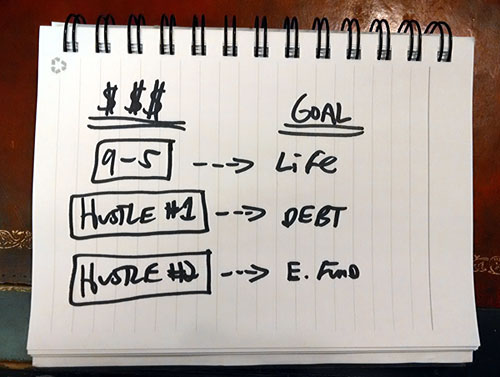 $ $$ GOAL
9-5 --→ Life
HUSTLE #1 --→ DEBT
HUSTLE #2 --→ E. FUND